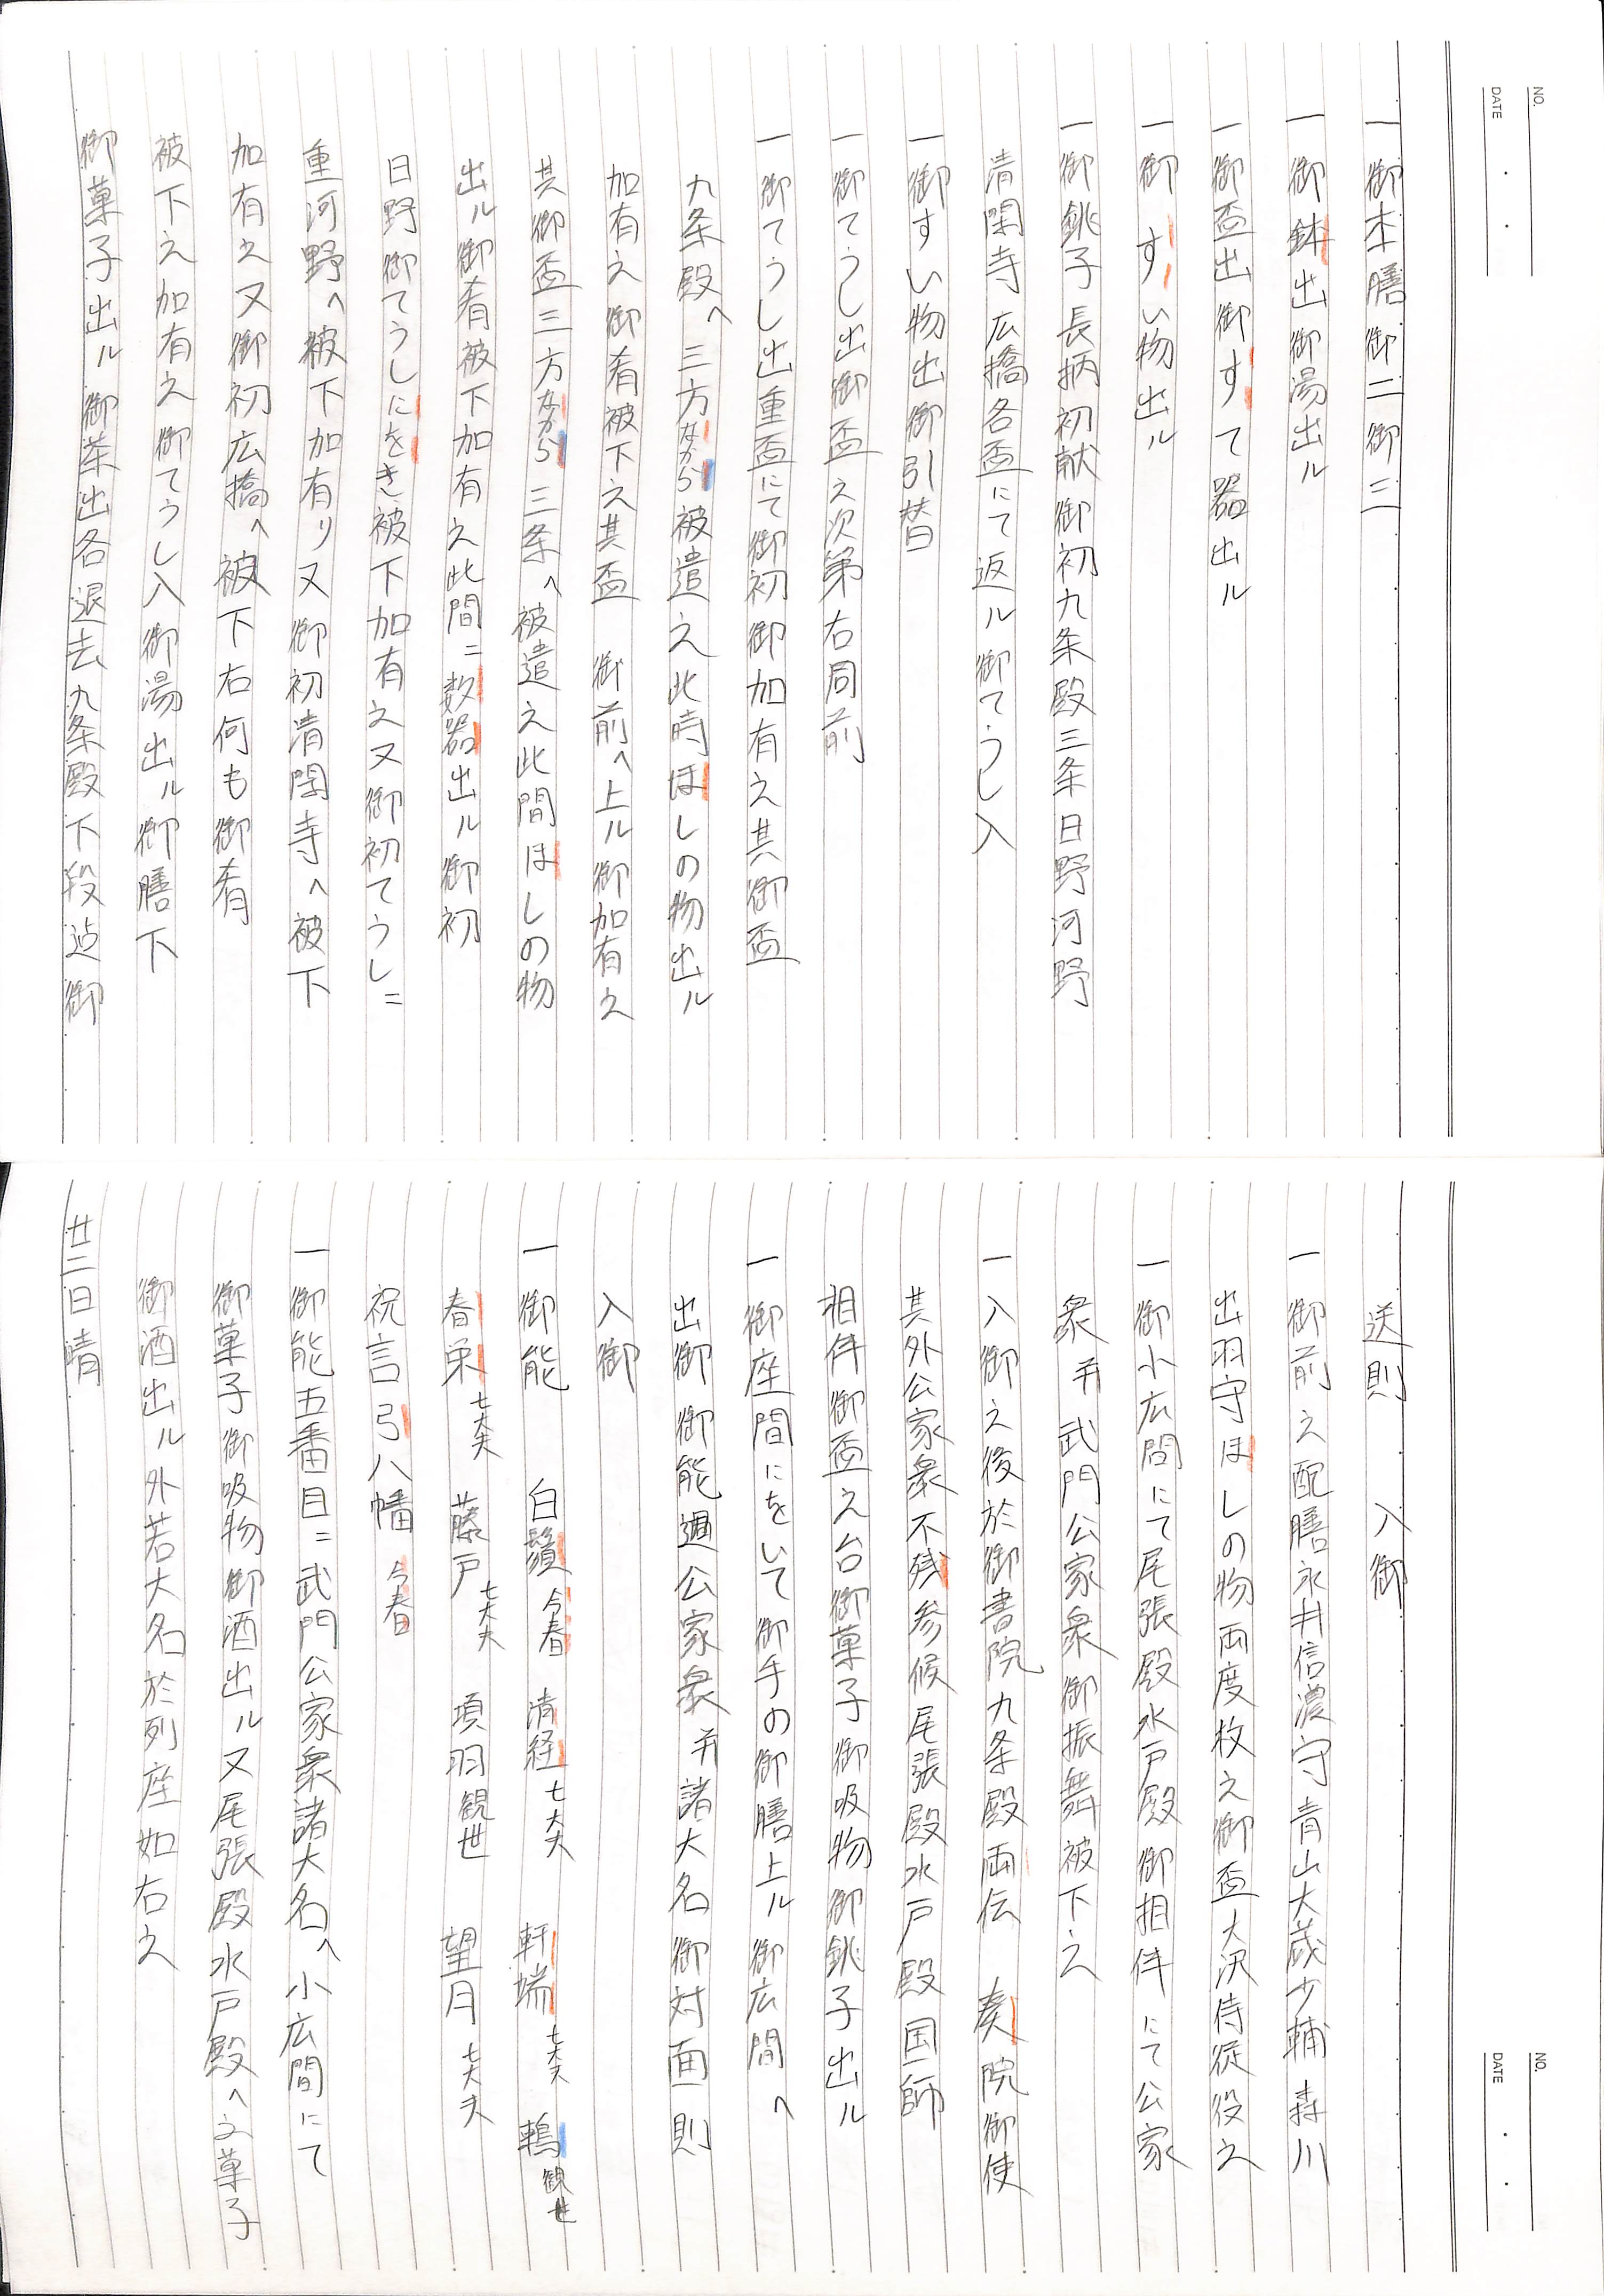 NO.
DATE
一御本膳御二御三
一御鉢出御湯出ル
一御盃出御すて器出ル
一御すい物出ル
一御銚子長柄初献御初九条殿三条日野河野
清閑寺広橋各盃にて返ル御てうし入
一御すい物出御引替
一御てうし出御盃之次第右同前
一御てうし出重盃にて御初御加有之其御盃
九条殿へ三方なから被遣之此時ほしの物出ル
加有之御肴被下之其盃 御前へ上ル御加有之
其御盃三方なから三条へ被遣之此間ほしの物
出ル御肴被下加有之此間ニ数器出ル御初
日野御てうしにをき被下加有之又御初てうしニ
重河野へ被下加有リ又御初清閑寺へ被下
加有之又御初広橋へ被下右何も御肴
被下之加有之御てうし入御湯出ル御膳下
御菓子出ル御茶出各退去九条殿下段迠御
NO.
DATE
送則 入御
一御前之配膳永井信濃守青山大蔵少輔森川
出羽守ほしの物両度枚之御盃大沢侍従役之
一御小広間にて尾張殿水戸殿御相伴にて公家
衆并武門公家衆御振舞被下之
一入御之後於御書院九条殿両伝 奏院御使
其外公家衆不残参候尾張殿水戸殿国師
相伴御盃之台御菓子御吸物御銚子出ル
一御座間にをいて御手の御膳上ル御広間へ
出御御能過公家衆并諸大名御対面則
入御
一御能 白鬚今春 清経七大夫 軒端七大夫 鵺観世
春栄七大夫 藤戸七大夫 項羽観世 望月七大夫
祝言弓八幡今春
一御能五番目ニ武門公家衆諸大名へ小広間にて
御菓子御吸物御酒出ル又尾張殿水戸殿へ之菓子
御酒出ル外若大名於列座如右之
廿二日晴